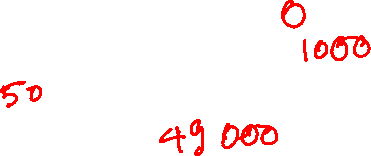 0
1000
50
49 000